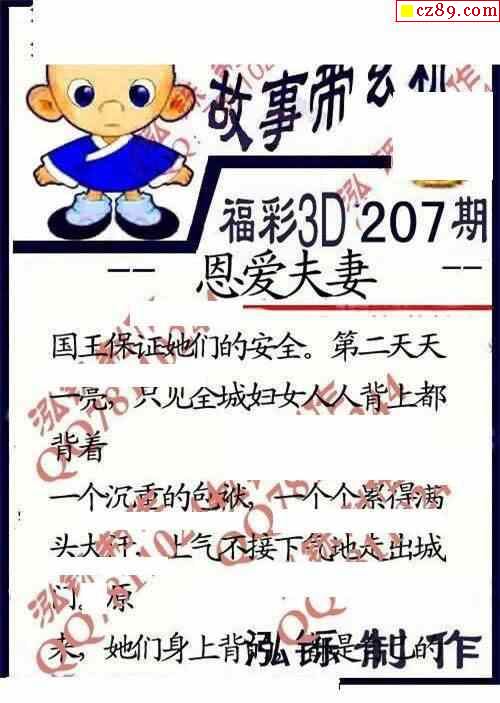 cz89.com
故事带玄机
福彩3D 207期
-- 恩爱夫妻 --
国王保证她们的安全。第二天天
一亮，只见全城妇女人人背上都
背着
一个沉重的包袱，一个个累得满
头大汗．上气不接下气地走出城
门。原
来，她们身上背 是 的
泓 制作